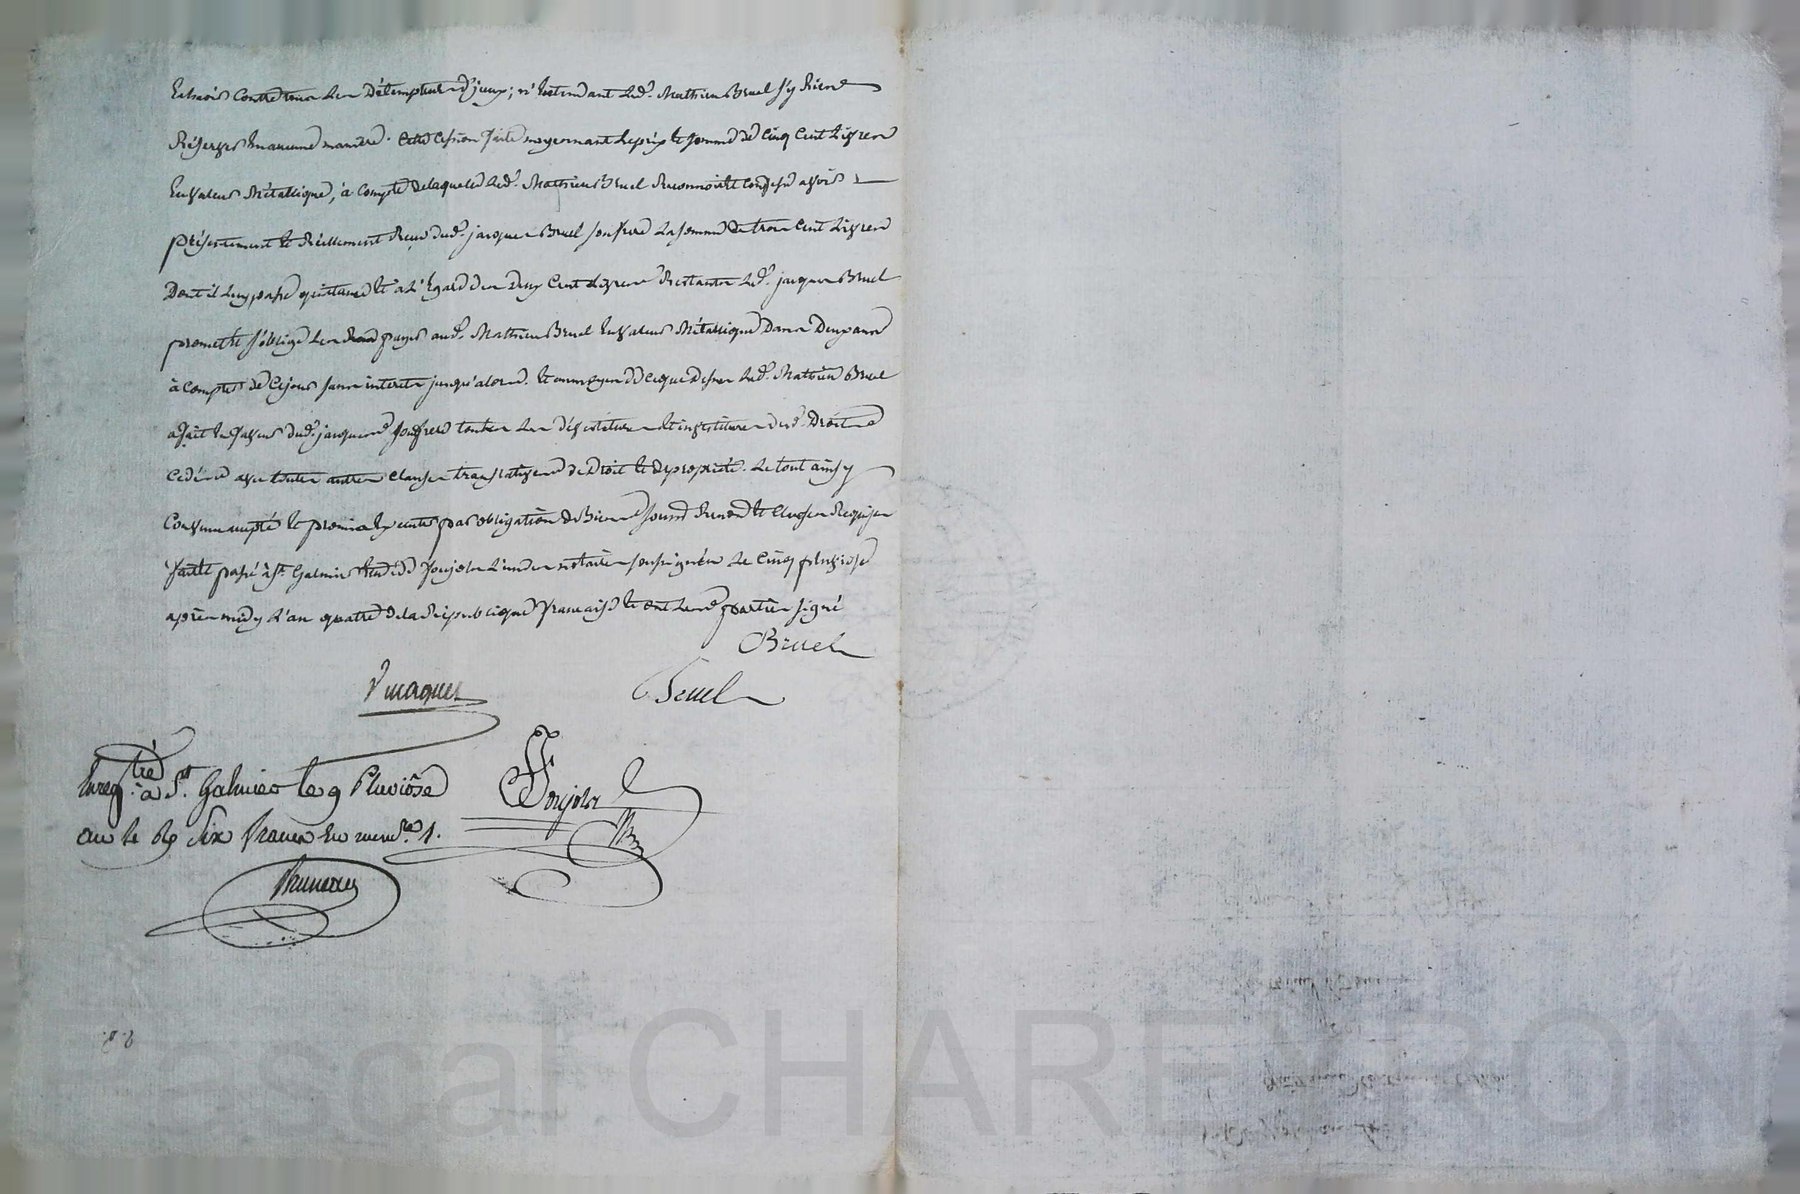 Echoir Contre tous Les Détempteurs d'jceux; n'Entendant Led. Mathieu Bruel s'y Rien
Réserver En aucune maniere. Cette Cession faite moyennant Le prix et somme de Cinq Cent Livres
En Valeur Métallique, à Compte de laquelle Led. Mathieu Bruel Reconnoit et Confesse avoir
présentement et Réellement Reçu dud. jacques Bruel son frere La somme de trois Cent Livres
Dont il Luy passe quittance et a L'Egard des deux Cent Livres Restantes Led. jacques Bruel
promet et s'oblige Les payer aud. Mathieu Bruel En Valeur Métallique Dans Deux ans
à Compter de Ce jour sans interets jusqu'alors. et au moyen de Ce que Dessus Led. Mathieu Bruel
a fait En faveur dud. jacques son frere toutes Les dévestitures et investitures desd. Droits
Cédés avec toutes autres Clauses translatives de Droit et de propriété. Le tout ainsy
Convenu accepté et promis par obligation de Biens soumis Renon. et Clauses Requises
fait et passé à St. Galmier Etude de Soujols L'un des notaires soussignés Le Cinq pluviose
après midy L'an quatre de la République française et ont Les parties signé
Bruel
Bruel
Enregtré à St. Galmier le 9 Pluviôse
an 4e R. Six francs En num.re
Soujols
Pascal CHAREYRON